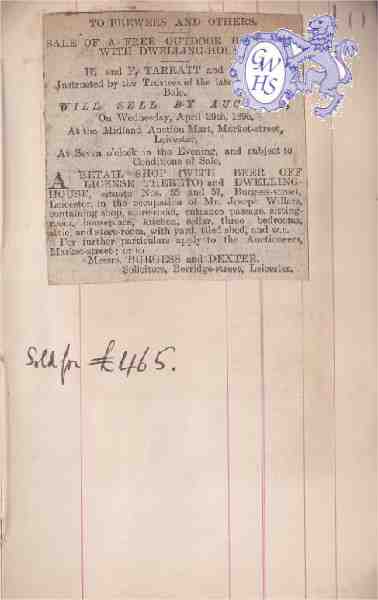 TO BREWERS AND OTHERS.
SALE OF A FREE OUTDOOR
WITH DWELLING-HOUSE
H. and F. TARRATT and
Instructed by the Trustees of the late
Bale,
WILL SELL BY AUC
On Wednesday, April 29th, 1896,
At the Midland Auction Mart, Market-street,
Leicester,
At Seven o'clock in the Evening, and subject to
Conditions of Sale,
A RETAIL SHOP (WITH BEER OFF
LICENSE THERETO) and DWELLING-
HOUSE, situate Nos. and Burgess-street,
Leicester, in the occupation of Mr. Joseph Willars,
containing shop, store-room, entrance passage, sitting-
room, house-place, kitchen, cellar, three bedrooms,
attic, and store-room, with yard, tiled shed, and w.c.
For further particulars apply to the Auctioneers,
Market-street; or to
Messrs. BURGESS and DEXTER,
Solicitors, Berridge-street, Leicester.
GWHS
Sold for £465.